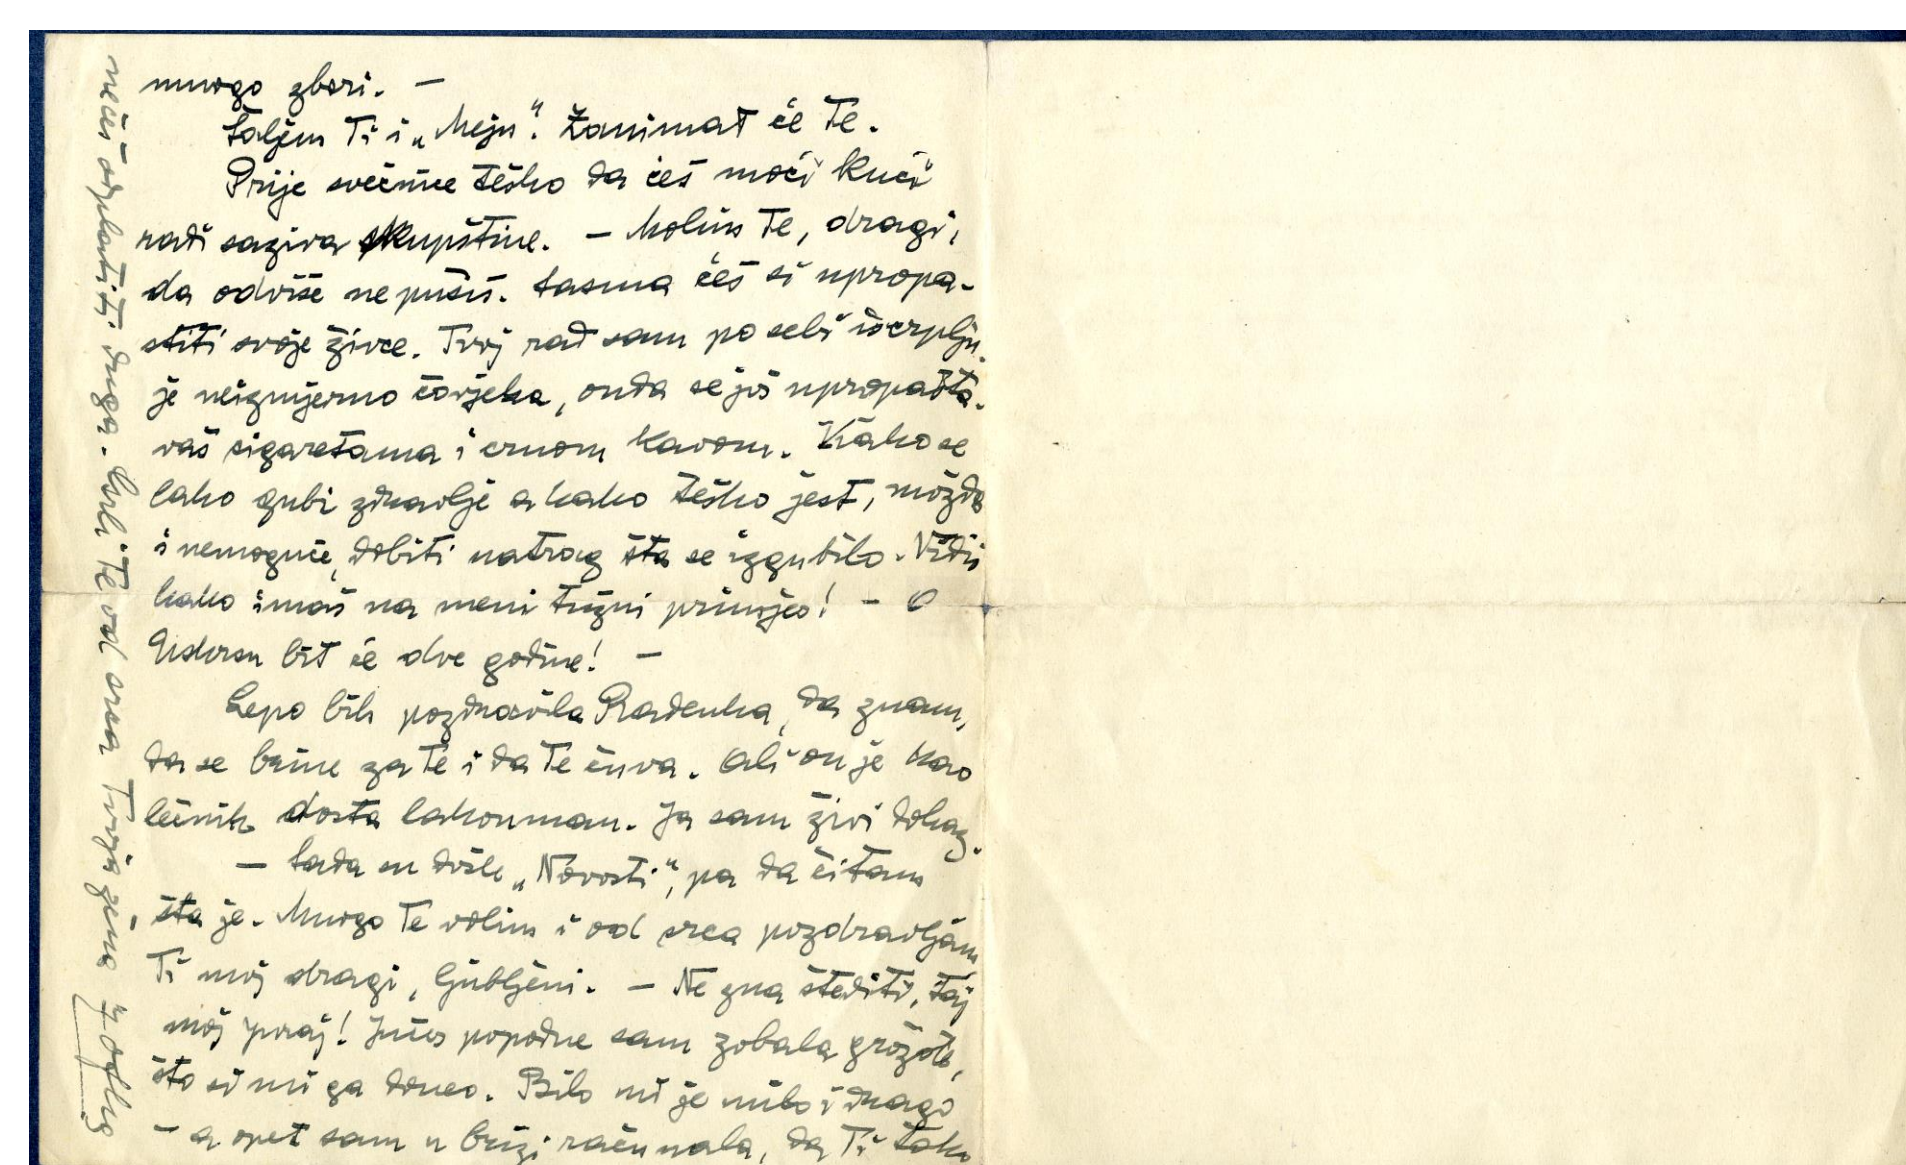 mnogo zbori. —
Šaljem Ti i „Meju“. Zanimat će Te.
Prije svećnice teško da ćeš moći kući
radi saziva skupštine. — Molim Te, dragi,
da odviše ne pušiš. Sasma ćeš si upropa-
stiti svoje živce. Tvoj rad sam po sebi iscrplju-
je neizmjerno čovjeka, onda se još upropašta-
vaš cigaretama i crnom kavom. Kako se
lako gubi zdravlje a kako teško jest, možda
i nemoguće, dobiti natrag šta se izgubilo. Vidiš
kako imaš na meni tužni primjer! — O
Uskrsu bit će dve godine! —
Lepo bih pozdravila Radenka, da znam,
da se brine za Te i da Te čuva. Ali on je kao
lečnik dosta lakouman. Ja sam živi dokaz.
— Sada su došle „Novosti“, pa da čitam
šta je. Mnogo Te volim i od srca pozdravljam
Ti moj dragi, ljubljeni. — Ne zna štediti, taj
moj! Jučer popodne sam zobala grožđe,
što si mi ga doneo. Bilo mi je milo i drago
— a opet sam u brizi računala, da Ti tako
nećeš odplatiti duga. Grli Te od srca Tvoja žena